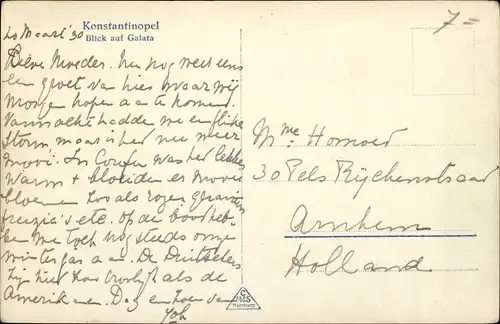 20 Maart '30
Konstantinopel
Blick auf Galata
7=
Lieve Moeder. Nu nog weer eens
een groet van hier waar wij
morgen hopen aan te komen.
Vannacht hadden we en flinke
storm, maar is het nu weer
mooi. In Corfu was het lekker
warm + bloeiden er mooie
bloemen zooals rozen, geraniums
freezia's etc. Op de boot heb-
ben we toch nog steeds onze
wintergas aan. De Duitschers
zijn hier haar vroolijk als de
Amerikanen. Dag en
Mme Homoed
30 Pels Rijckenstraat
Arnhem
Holland
Hamburg